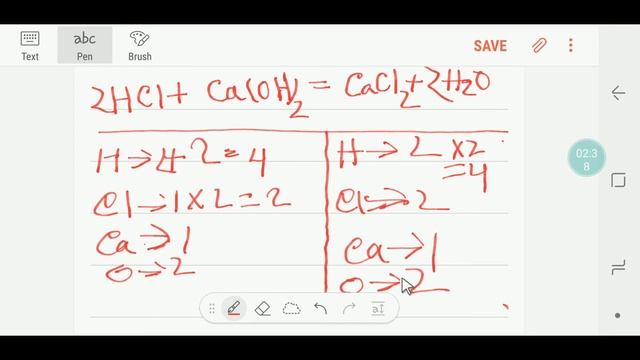 Text
abc
Pen
Brush
SAVE
2HCl + Ca(OH)2 = CaCl2 + 2H2O
H → 2 = 4
Cl → 1 X 2 = 2
Ca → 1
O → 2
H → 2 X2
=4
Cl → 2
Ca → 1
O → 2
02:3
8